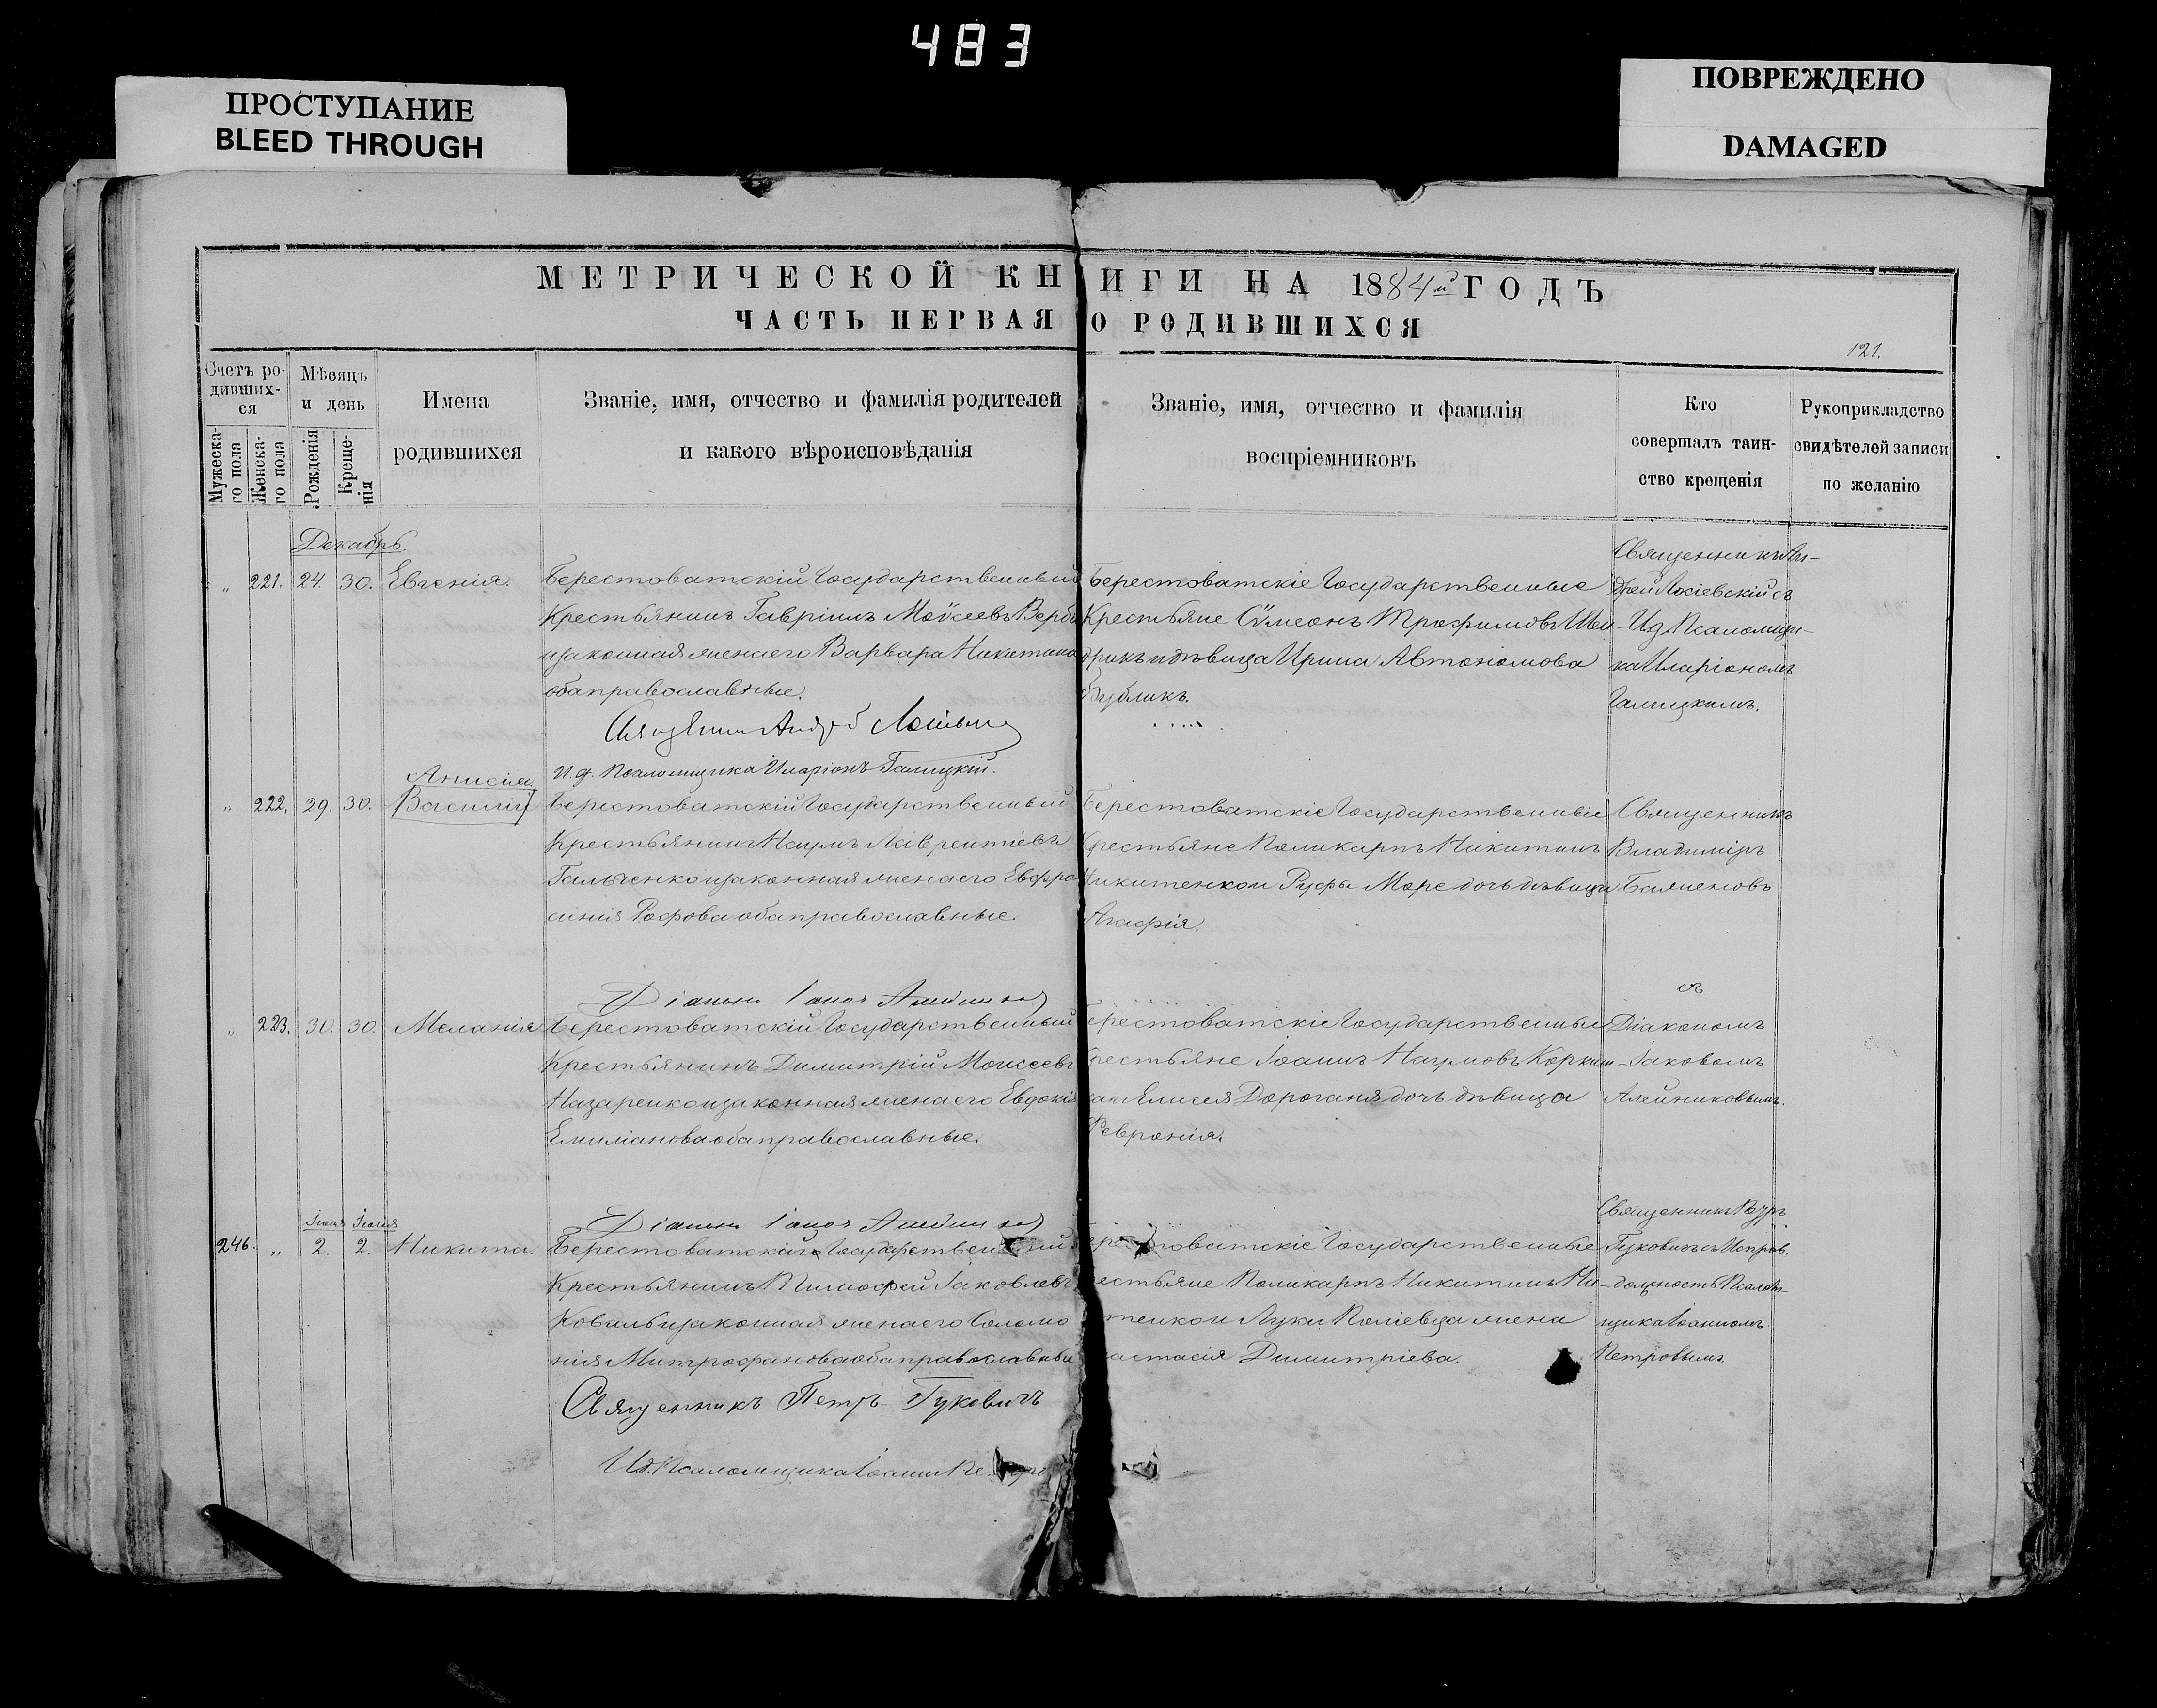 483
ПРОСТУПАНИЕ
BLEED THROUGH
ПОВРЕЖДЕНО
DAMAGED
МЕТРИЧЕСКОЙ КНИГИ НА 1884й ГОДЪ
ЧАСТЬ ПЕРВАЯ О РОДИВШИХСЯ
121.
Счетъ ро-
дивших-
ся
Мужеска-
го пола
Женска-
го пола
Мѣсяцъ
и день
Рожденія
Креще-
нія
Имена
родившихся
Званіе, имя, отчество и фамилія родителей
и какого вѣроисповѣданія
Званіе, имя, отчество и фамилія
воспріемниковъ
Кто
совершалъ таин-
ство крещенія
Рукоприкладство
свидѣтелей записи
по желанію
Декабрь.
„ 221. 24. 30. Евгенія.
Берестоватскій Государственный
Крестьянинъ Гавріилъ Моѵсеевъ
и законная жена его Варвара Никитина
оба православные.
Берестоватскіе Государственные
Крестьяне Сѵмеонъ Трофимовъ Шен-
дрикъ и дѣвица Ирина Автономова
Бублик.
Священникъ Ан-
дрей съ
И. д. Псаломщи-
ка Иларіономъ
Галицкимъ.
Священникъ Андрей
И. д. Псаломщика Иларіонъ Галицкій.
Анисія
„ 222. 29. 30. Василій
Берестоватскій Государственный
Крестьянинъ Наумъ Лаврентіевъ
Гальченко и законная жена его Евфро
синія оба православные.
Берестоватскіе Государственные
Крестьяне Поликарпъ Никитинъ
Никитенко и дочь дѣвица
Агафія.
Священникъ
Владиміръ
Баженовъ
Діаконъ Іаковъ
„ 223. 30. 30. Меланія
Берестоватскій Государственный
Крестьянинъ Димитрій Моисеевъ
Назаренко и законная жена его Евдокія
Емиліанова оба православные.
Берестоватскіе Государственные
Крестьяне Іоаннъ Наумовъ
Елисея Дороганя дочь дѣвица
Февронія.
съ
Діакономъ
Іаковомъ
Алейниковымъ.
Діаконъ Іаковъ
246. „ 2. 2. Никита.
Берестоватскій Государственный
Крестьянинъ Тимофей Іаковлевъ
Коваль и законная жена его Соломо
нія Митрофанова оба православные
Берестоватскіе Государственные
Крестьяне Поликарпъ Никитинъ Ни-
китенко и Луки жена
Анастасія Димитріева.
Священникъ Петръ
Гуковичъ съ Исправ.
должность Псалом-
щика Іоанномъ
Петровымъ.
Священникъ Петръ Гуковичъ
И. д. Псаломщика Іоаннъ